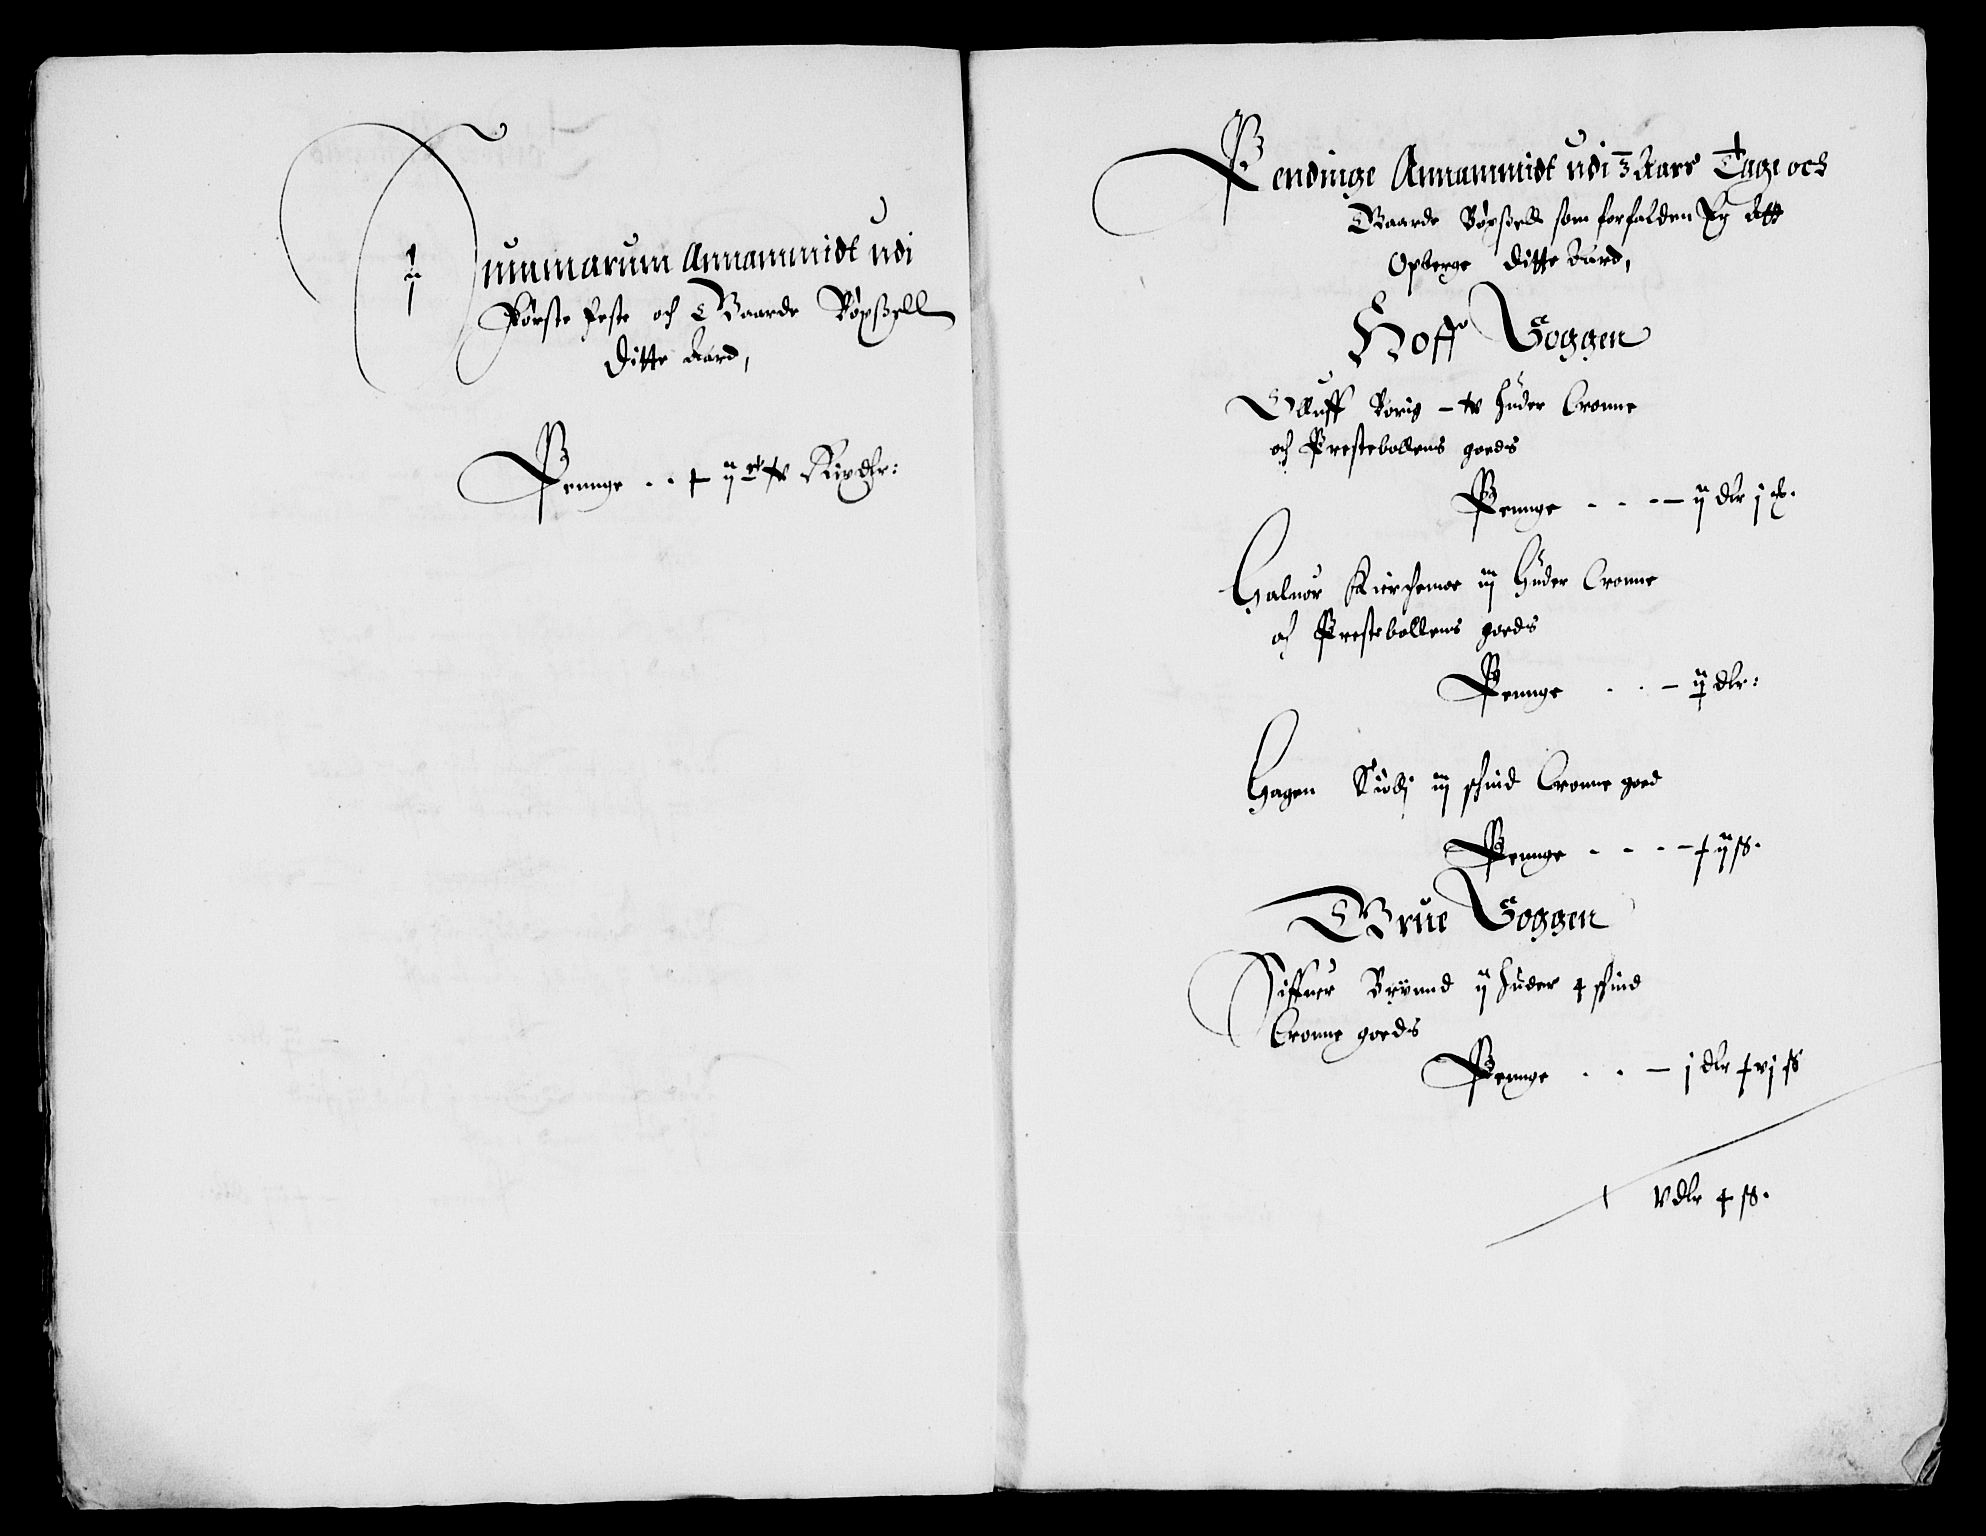 Summarum Annammidt udi
Første feste och Gaarde Bøxßell
Ditte Aard,
Pennge
Rixdlr:
Pendinge Annammidt udi 3 Aars Tage och
Gaarde Bøxßell som forfalden Er Att
Opberge Ditte Aard,
Hoff Soggen
Olluff Vorig - Huder Cronne
och Prestebollens goeds
Penge - - - - ij dlr j
Haluor Kirckemoe iij Huder Cronne
och Prestebollens goeds
Penge - - - ij dlr:
Hagen iij schind Cronne goed
Penge - - - - ß.
Grue Soggen
Siffuer Brÿnnd ij huder 4 schind
Cronne goeds
Penge - - - j dlr ß
V dlr 4 ß.